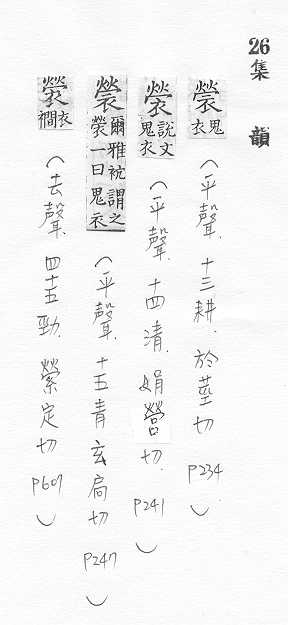 26集 韻
褮 鬼衣（平聲．十三耕．於莖切 P234）
褮 說文鬼衣（平聲．十四清．娟營切．P241）
褮 爾雅袕謂之褮一曰鬼衣（平聲．十五青玄扃切 P247）
褮 衣襇（去聲．四十五勁．縈定切 P609）